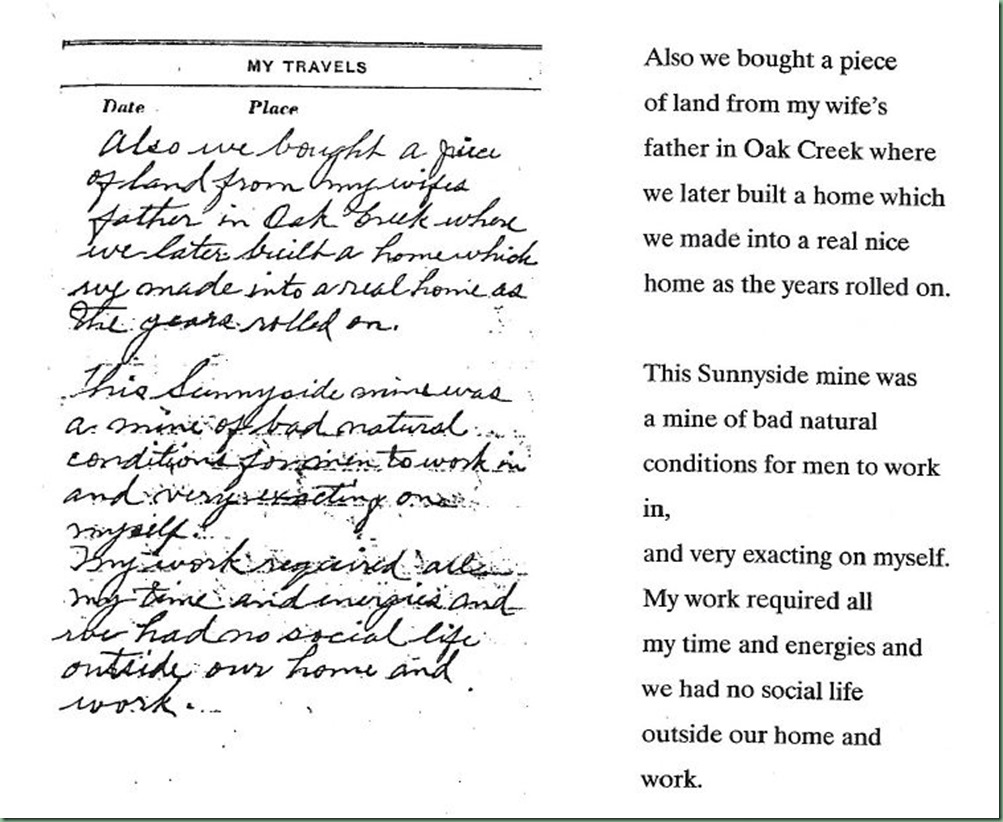 MY TRAVELS
Date Place
Also we bought a piece
of land from my wifes
father in Oak Creek where
we later built a home which
we made into a real home as
the years rolled on.
This Sunnyside mine was
a mine of bad natural
conditions for men to work in
and very exacting on
myself.
My work required all
my time and energies and
we had no social life
outside our home and
work.
Also we bought a piece
of land from my wife's
father in Oak Creek where
we later built a home which
we made into a real nice
home as the years rolled on.
This Sunnyside mine was
a mine of bad natural
conditions for men to work
in,
and very exacting on myself.
My work required all
my time and energies and
we had no social life
outside our home and
work.